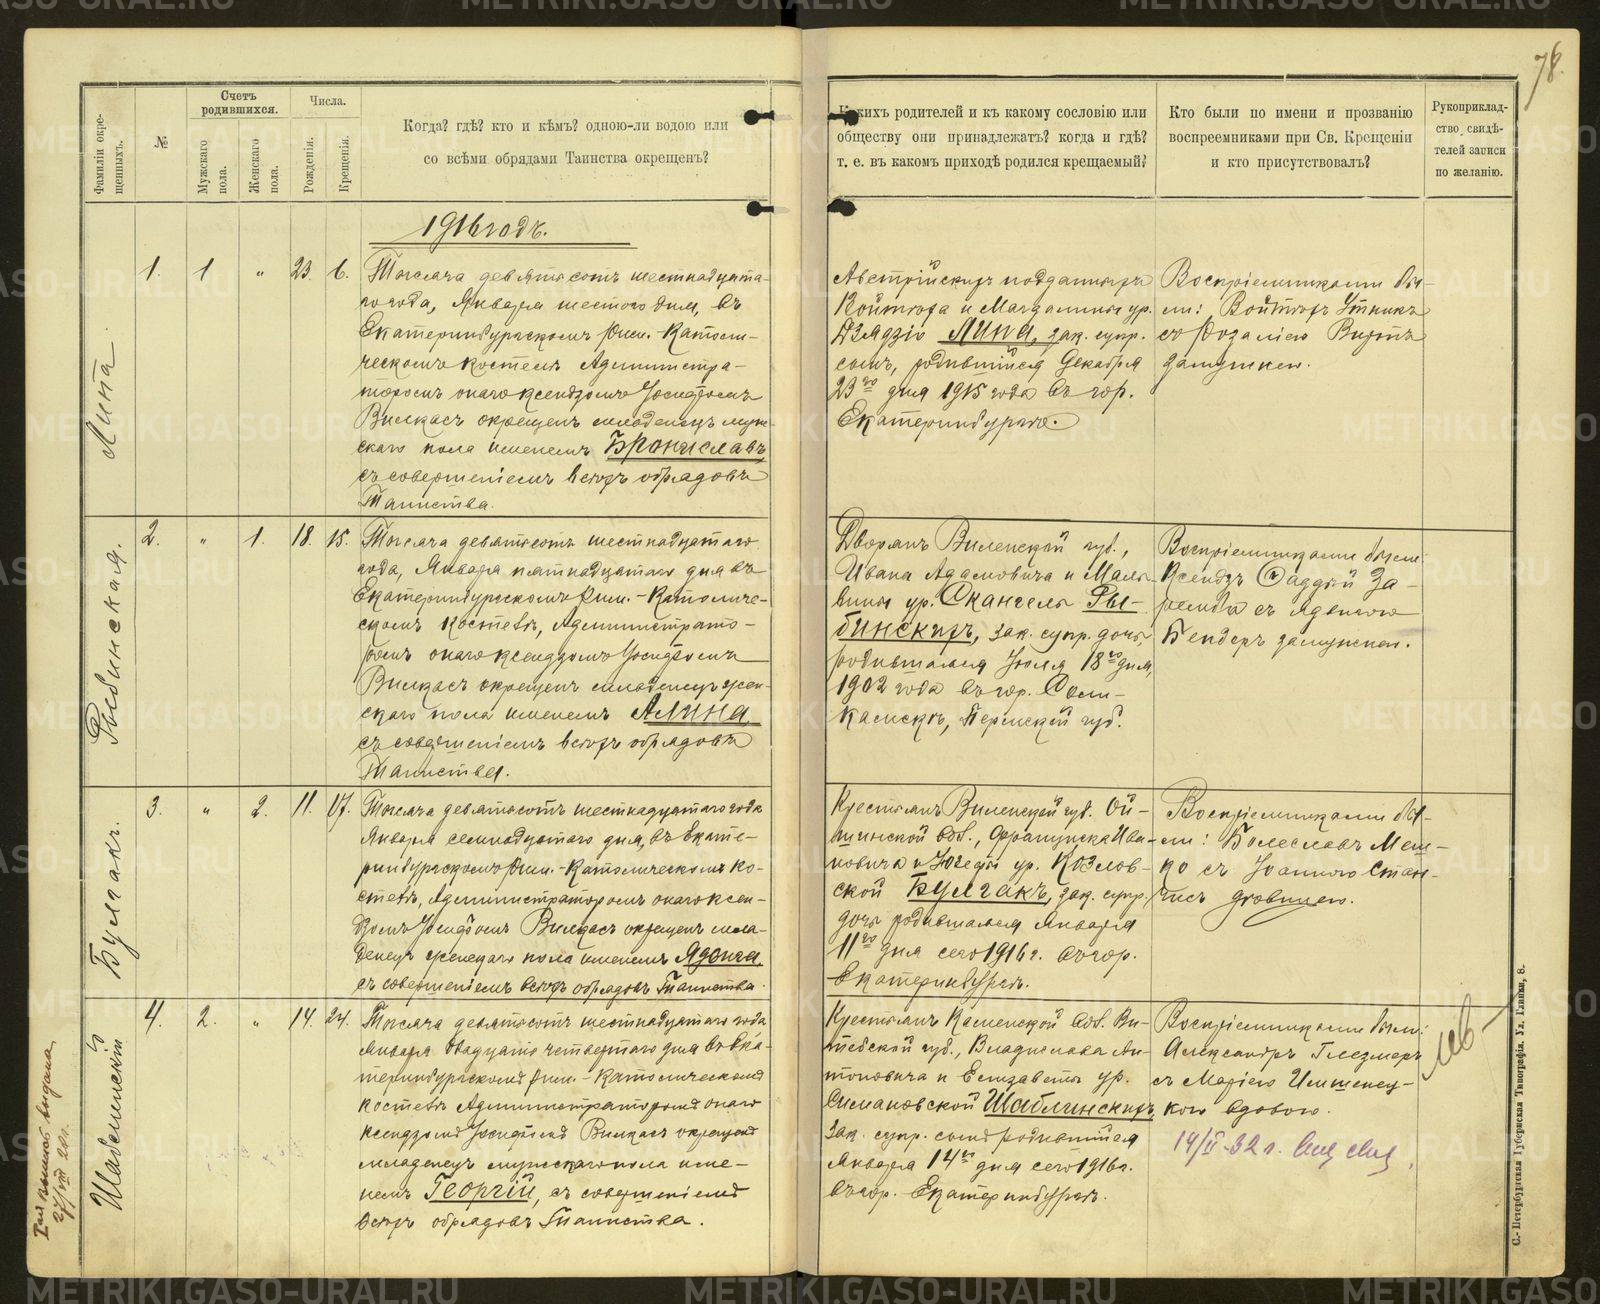 78.
Фамиліи окре-
щенныхъ.
№
Счетъ
родившихся.
Мужскаго
пола.
Женскаго
пола.
Числа.
Рожденія.
Крещенія.
Когда? гдѣ? кто и кѣмъ? одною-ли водою или
со всѣми обрядами Таинства окрещенъ?
Какихъ родителей и къ какому сословію или
обществу они принадлежатъ? когда и гдѣ?
т. е. въ какомъ приходѣ родился крещаемый?
Кто были по имени и прозванію
воспреемниками при Св. Крещеніи
и кто присутствовалъ?
Рукоприклад-
ство свидѣ-
телей записи
по желанію.
1916 годъ.
Липа
1. 1 „ 23 6.
Тысяча девятьсотъ шестнадцата-
го года, Января шестого дня, въ
Екатеринбургскомъ Рим.-Католи-
ческомъ костелѣ Администра-
торомъ онаго ксендзомъ Іосифомъ
Вилкасъ окрещенъ младенецъ муж-
скаго пола именемъ Брониславъ,
съ совершеніемъ всѣхъ обрядовъ
Таинства.
Австрійскихъ подданныхъ
Войтѣха и Магдалины ур.
Дзядзіо Липа, зак. супр.
сынъ, родившійся Декабря
23го дня 1915 года въ гор.
Екатеринбургѣ.
Воспріемниками бы-
ли: Войтѣхъ Утникъ
съ Розаліею Виртъ
замужнею.
Рыбинская.
2. „ 1. 18. 15.
Тысяча девятьсотъ шестнадцатаго
года, Января пятнадцатаго дня въ
Екатеринбургскомъ Рим.-Католиче-
скомъ костелѣ, Администрато-
ромъ онаго ксендзомъ Іосифомъ
Вилкасъ окрещенъ младенецъ жен-
скаго пола именемъ Алина
съ совершеніемъ всѣхъ обрядовъ
Таинства.
Дворянъ Виленской губ.,
Ивана Адамовича и Маль-
вины ур. Скангель Ры-
бинскихъ, зак. супр. дочь,
родившаяся Іюля 18го дня,
1902 года въ гор. Соли-
камскѣ, Пермской губ.
Воспріемниками были:
Ксендзъ Фаддей За-
ремба съ Ядвигою
Бендеръ замужнею.
Булгакъ.
3. „ 2. 11. 17.
Тысяча девятьсотъ шестнадцатаго года
Января семнадцатаго дня, въ Екате-
ринбургскомъ Рим.-Католическомъ ко-
стелѣ, Администраторомъ онаго ксен-
дзомъ Іосифомъ Вилкасъ окрещенъ мла-
денецъ женскаго пола именемъ Ядвига,
съ совершеніемъ всѣхъ обрядовъ Таинства.
Крестьянъ Виленской губ. Ой-
шинской вол., Франциска Ива-
новича и Юзефы ур. Козлов-
ской Булгакъ, зак. супр.
дочь родившаяся Января
11го дня сего 1916 г. въ гор.
Екатеринбургѣ.
Воспріемниками бы-
ли: Болеславъ Меш-
ко съ Іоанною Стан-
чисъ дѣвицею.
Шаблинскій
4. 2. „ 14. 24.
Тысяча девятьсотъ шестнадцатаго года
Января двадцать четвертаго дня въ Ека-
теринбургскомъ Рим.-Католическомъ
костелѣ Администраторомъ онаго
ксендзомъ Іосифомъ Вилкасъ окрещенъ
младенецъ мужскаго пола име-
немъ Георгій, съ совершеніемъ
всѣхъ обрядовъ Таинства.
Крестьянъ Каменской вол. Ви-
тебской губ., Владислава Ан-
тоновича и Елизаветы ур.
Симановской Шаблинскихъ,
зак. супр. сынъ родившійся
Января 14го дня сего 1916 г.
въ гор. Екатеринбургѣ.
Воспріемниками были:
Александръ Глезмеръ
съ Маріею Ишменец-
кою вдовою.
14/II-32 г.
выписъ выдана
27/VII 20 г.
С.-Петербургская Губернская Типографія. Ул. Глинки, 8.
METRIKI.GASO-URAL.RU